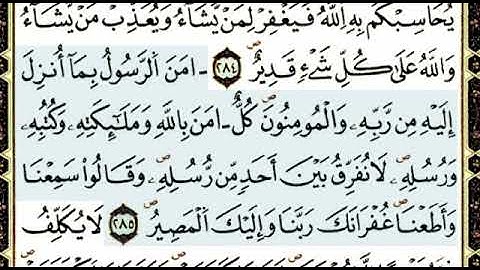 يُحَاسِبْكُم بِهِ اِللَّهُ فَيَغْفِرْ لِمَنْ يَّشَآءُ وَيُعَذِّب مَّنْ يَّشَآءُ
وَاللَّهُ عَلَىٰ كُلِّ شَےْءٖ قَدِيرٌ ٢٨٤ ءَامَنَ اَلرَّسُولُ بِمَآ أُنزِلَ
إِلَيْهِ مِن رَّبِّهِۦ وَالْمُومِنُونَ كُلٌّ ءَامَنَ بِاللَّهِ وَمَلَٰٓئِكَتِهِۦ وَكُتُبِهِۦ
وَرُسُلِهِۦ لَا نُفَرِّقُ بَيْنَ أَحَدٖ مِّن رُّسُلِهِۦ وَقَالُواْ سَمِعْنَا
وَأَطَعْنَا غُفْرَانَكَ رَبَّنَا وَإِلَيْكَ اَلْمَصِيرُ ٢٨٥ لَا يُكَلِّفُ